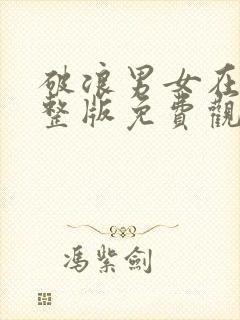 破浪男女在
整版免費觀
馮紫劍